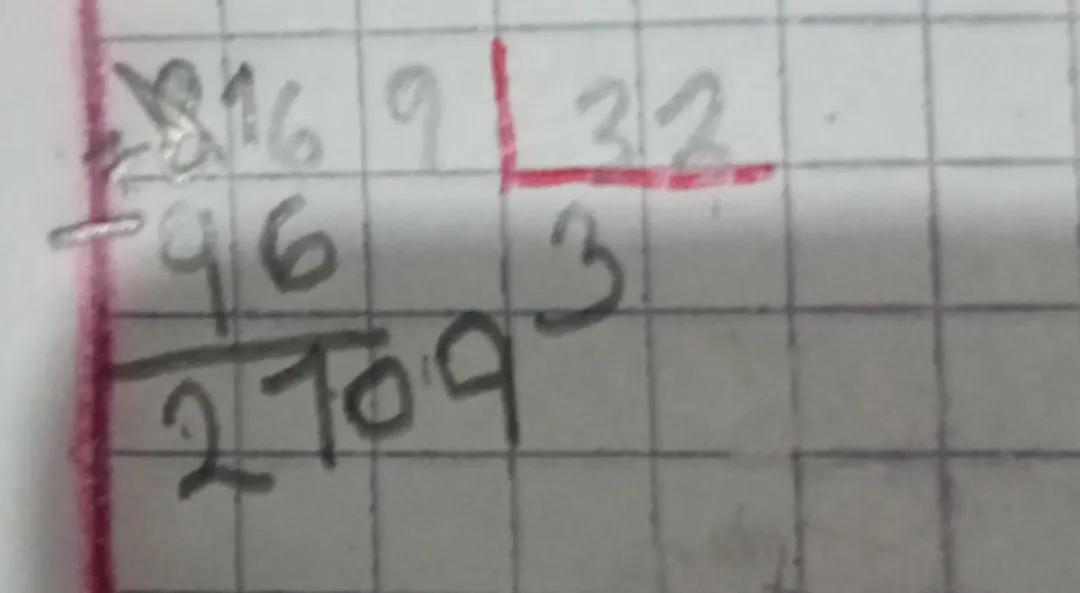 8169 32
- 96 3
2109